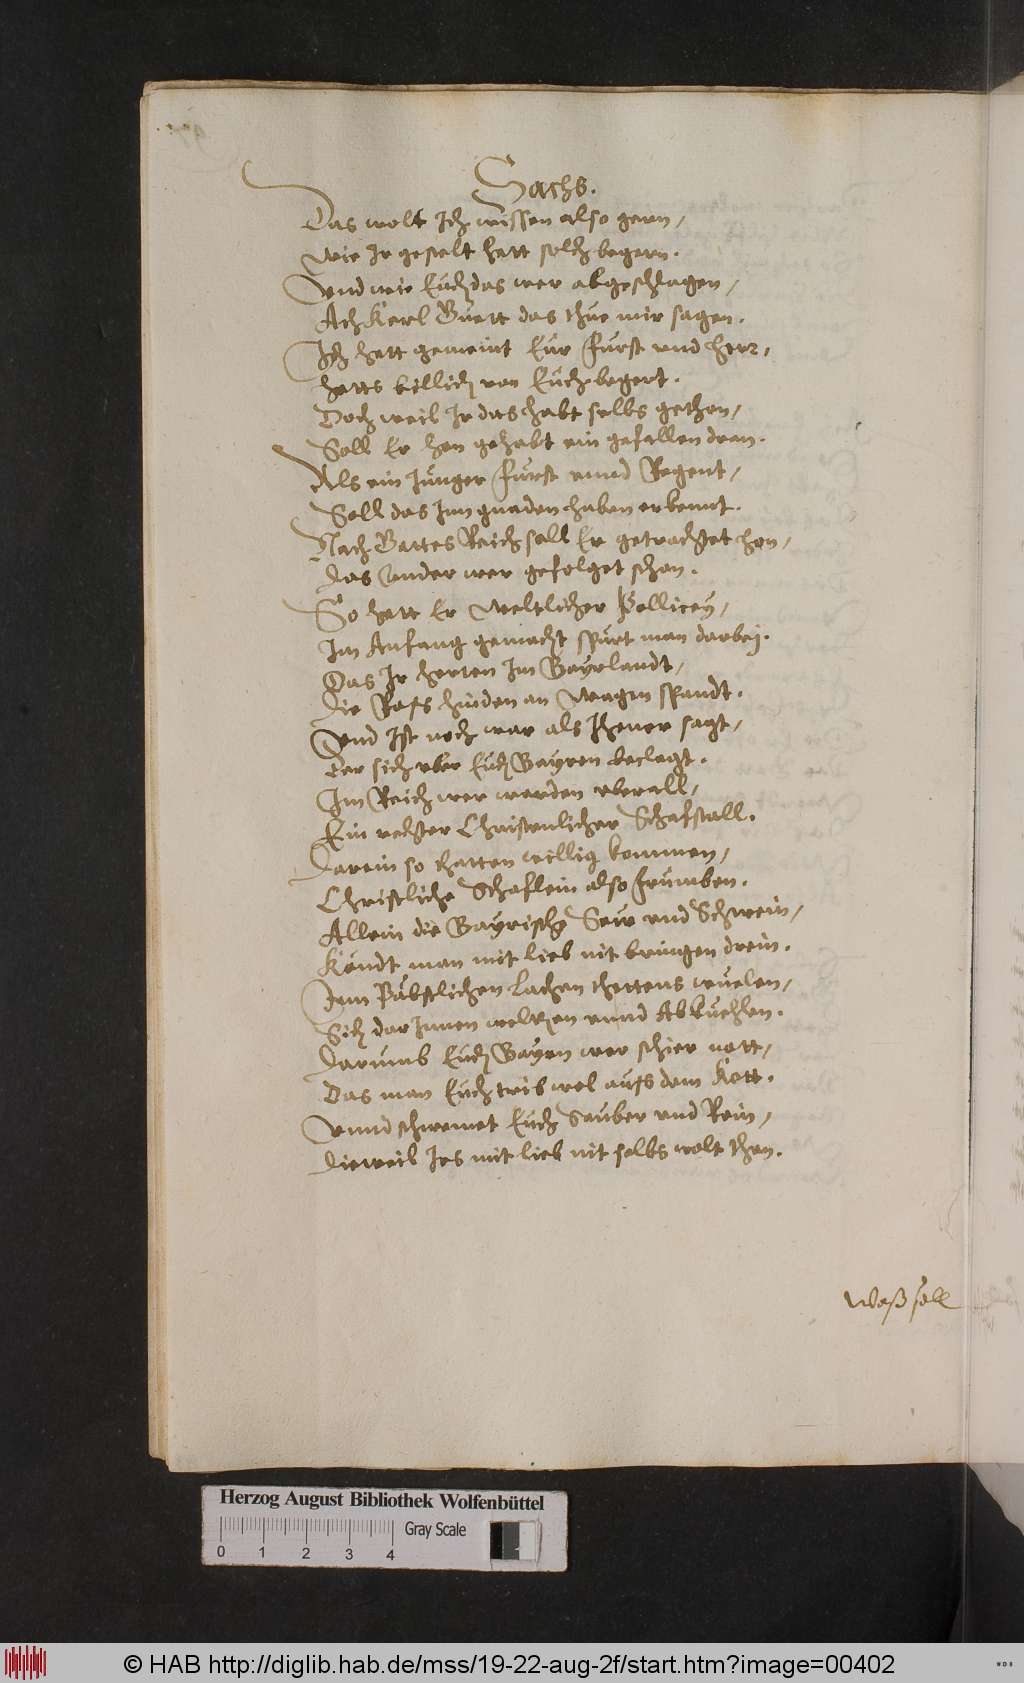 Sachs.
Das wolt Ich wissen also gern,
wie Ir gestalt hett solch begern.
Vnd wie Euch das wer abgeschlagen,
Ach Kerl Guett das thue mir sagen.
Ich hett gemeint Eur Furst vnd herr,
hetts billich von Euch begert.
Doch weil Ir das habt selbs gethon,
Soll Er hon gehabt ein gefallen dran.
Als ein Junger Furst vnnd Regent,
Soll das Inn gnaden haben erkennt.
Nach Gottes Reich soll Er getrachtet hon,
das Ander wer gefolget schon.
So hett Er weltlicher Pollicey,
Im Anfang gemacht spurt man darbej.
Das Ir herren Im Bayrlandt,
die Roß hinden an Wagen spandt.
Vnd Ist noch war als Jhener sagt,
der sich vber Euch Bayren beclagt.
Im Reich wer worden vberall,
Ein rechter Christenlicher Schafstall.
Darein so hetten willig kommen,
Christliche Schaflein also frumben.
Allein die Bayrische Sew vnd Schwein,
Köndt man mit lieb nit bringen drein.
Inn Päbstlichen lachen thettens wuelen,
Sich dar Innen weltzen vnnd Abkuehlen.
Darumb Euch Bayrn wer schier nott,
Das man Euch trib wol aufs dem Kott.
Vnnd schwemet Euch Sauber vnd Rein,
dieweil Irs mit lieb nit selbs wolt thon.
Waß soll
Herzog August Bibliothek Wolfenbüttel
Gray Scale
0 1 2 3 4
© HAB http://diglib.hab.de/mss/19-22-aug-2f/start.htm?image=00402